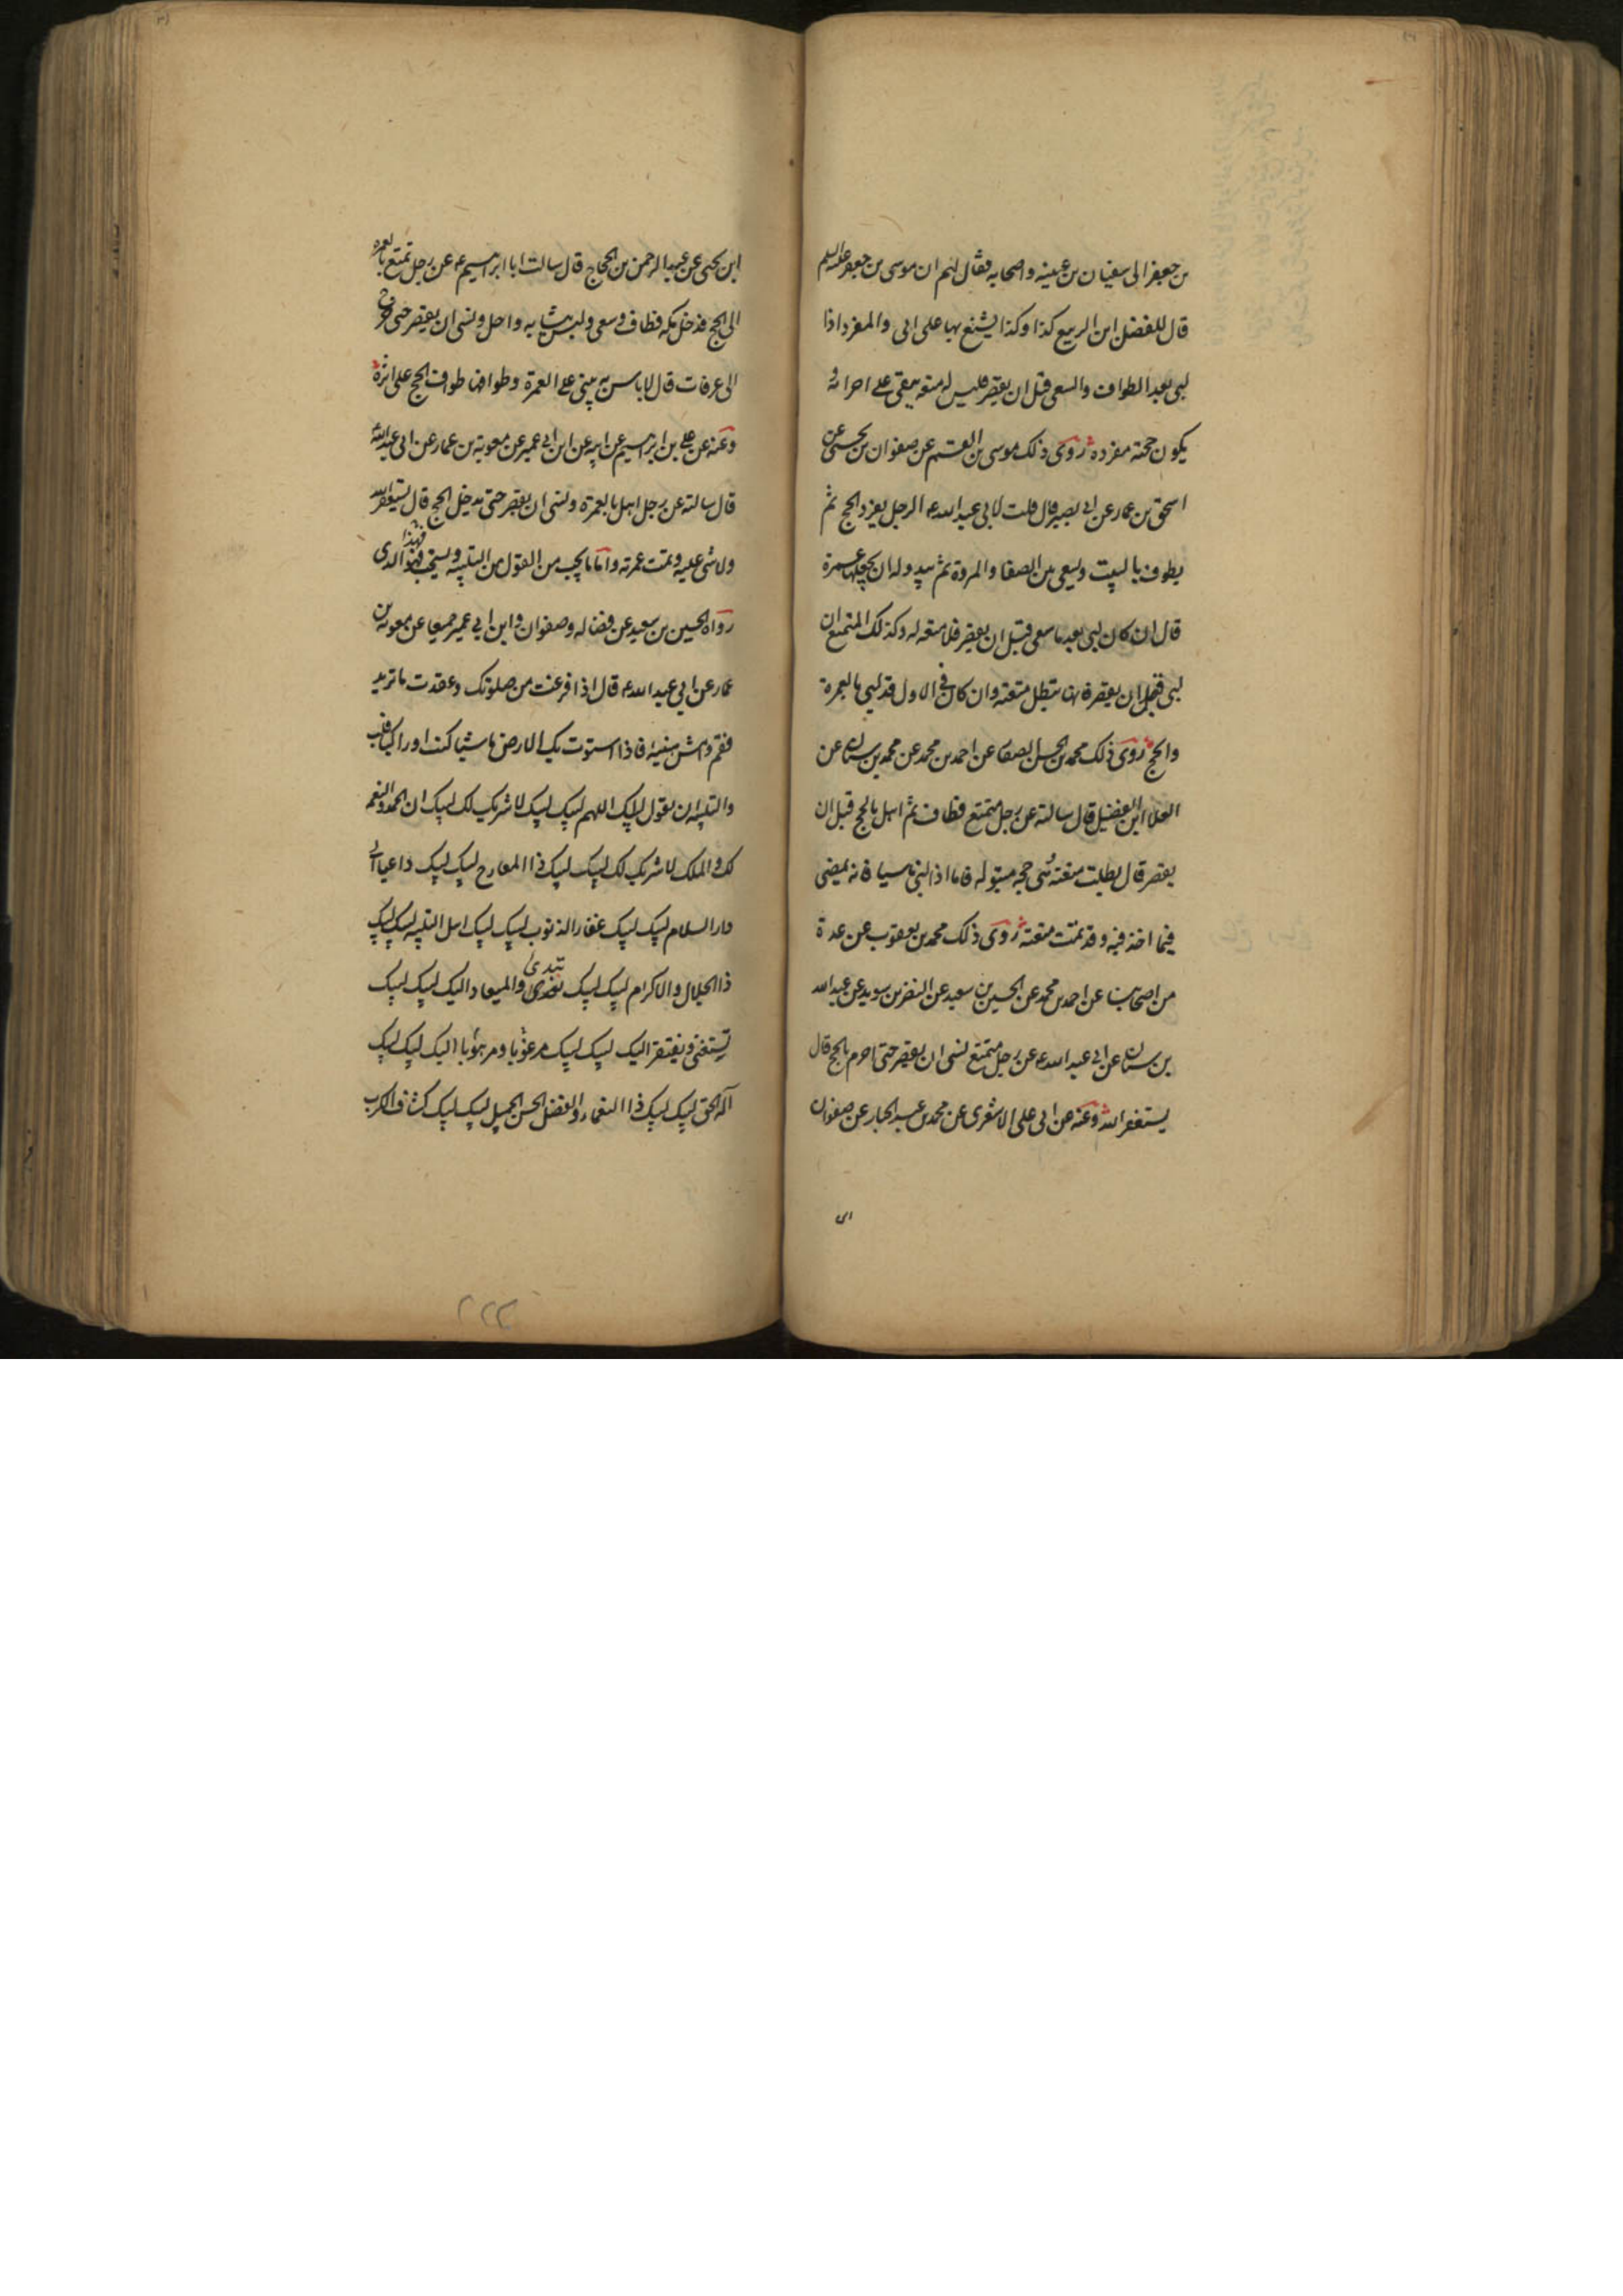 بن جعفر الى سفيان بن عيينه واصحابه فقال لهم ان موسى بن جعفر عليه السلم
قال للفضل ابن الربيع كذا وكذا يشنع بها على ابى والمفرد اذا
لبى بعد الطواف والسعى قبل ان يقصر فليس له متعه يبقى على احرامه
يكون حجته مفردة روى ذلك موسى بن القسم عن صفوان بن يحيى عن
اسحق بن عمار عن ابى بصير قال قلت لابى عبد الله ع الرجل يفرد الحج ثم
يطوف بالبيت ويسعى بين الصفا والمروة ثم يبدو له ان يجعلها عمرة
قال ان كان لبى بعد ما سعى قبل ان يقصر فلا متعه له وكذلك المتمتع ان
لبى قبل ان يقصر فانها تبطل متعته وان كان فى الاول قد لبى بالعمرة
والحج روى ذلك محمد بن الحسن الصفار عن احمد بن محمد عن محمد بن سنان عن
العلا ابن الفضيل قال سالته عن رجل متمتع فطاف ثم اهل بالحج قبل ان
يقصر قال بطلت متعته هى حجه مبتوله فاما اذا لبى ناسيا فانه يمضى
فيما اخذ فيه وقد تمت متعته روى ذلك محمد بن يعقوب عن عدة
من اصحابنا عن احمد بن محمد عن الحسين بن سعيد عن النضر بن سويد عن عبد الله
بن سنان عن ابى عبد الله ع عن رجل متمتع نسى ان يقصر حتى احرم بالحج قال
يستغفر الله وعنه عن ابى على الاشعرى عن محمد بن عبد الجبار عن صفوان
ابن يحيى عن عبد الرحمن بن الحجاج قال سالت ابا ابرهيم ع عن رجل تمتع بالعمرة
الى الحج فدخل مكه فطاف وسعى ولبس ثيابه واحل ونسى ان يقصر حتى خرج
الى عرفات قال لا باس به يبنى على العمرة وطوافها وطواف الحج على اثره
وعنه عن على بن ابرهيم عن ابيه عن ابن ابى عمير عن معوية بن عمار عن ابى عبد الله
قال سالته عن رجل اهل بالعمرة ونسى ان يقصر حتى يدخل الحج قال يستغفر الله
ولا شى عليه وتمت عمرته واما ما يجب من القول من التلبيه ويستحب فهذا الذى
رواه الحسين بن سعيد عن فضاله وصفوان وابن ابى عمير جميعا عن معوية بن
عمار عن ابى عبد الله ع قال اذا فرغت من صلوتك وعقدت ما تريد
فقم وامش هنيئه فاذا استوت بك الارض ماشيا كنت او راكبا فلب
والتلبيه ان يقول لبيك اللهم لبيك لبيك لا شريك لك لبيك ان الحمد والنعمه
لك والملك لا شريك لك لبيك لبيك ذا المعارج لبيك لبيك داعيا الى
دار السلام لبيك لبيك غفار الذنوب لبيك لبيك اهل التلبيه لبيك لبيك
ذا الجلال والاكرام لبيك لبيك تبدى والمعاد اليك لبيك لبيك
تستغنى ويفتقر اليك لبيك لبيك مرغوبا ومرهوبا اليك لبيك لبيك
اله الحق لبيك لبيك ذا النعماء والفضل الحسن الجميل لبيك لبيك كشاف الكرب